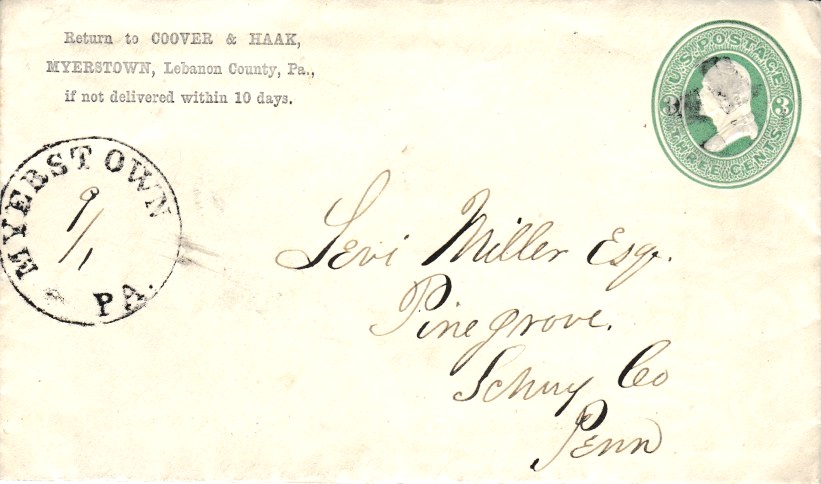 Return to COOVER & HAAK,
MYERSTOWN, Lebanon County, Pa.,
if not delivered within 10 days.
U.S. POSTAGE
3 3
THREE CENTS
MYERSTOWN
9/1
PA.
Levi Miller Esqr.
Pinegrove.
Schuy Co
Penn